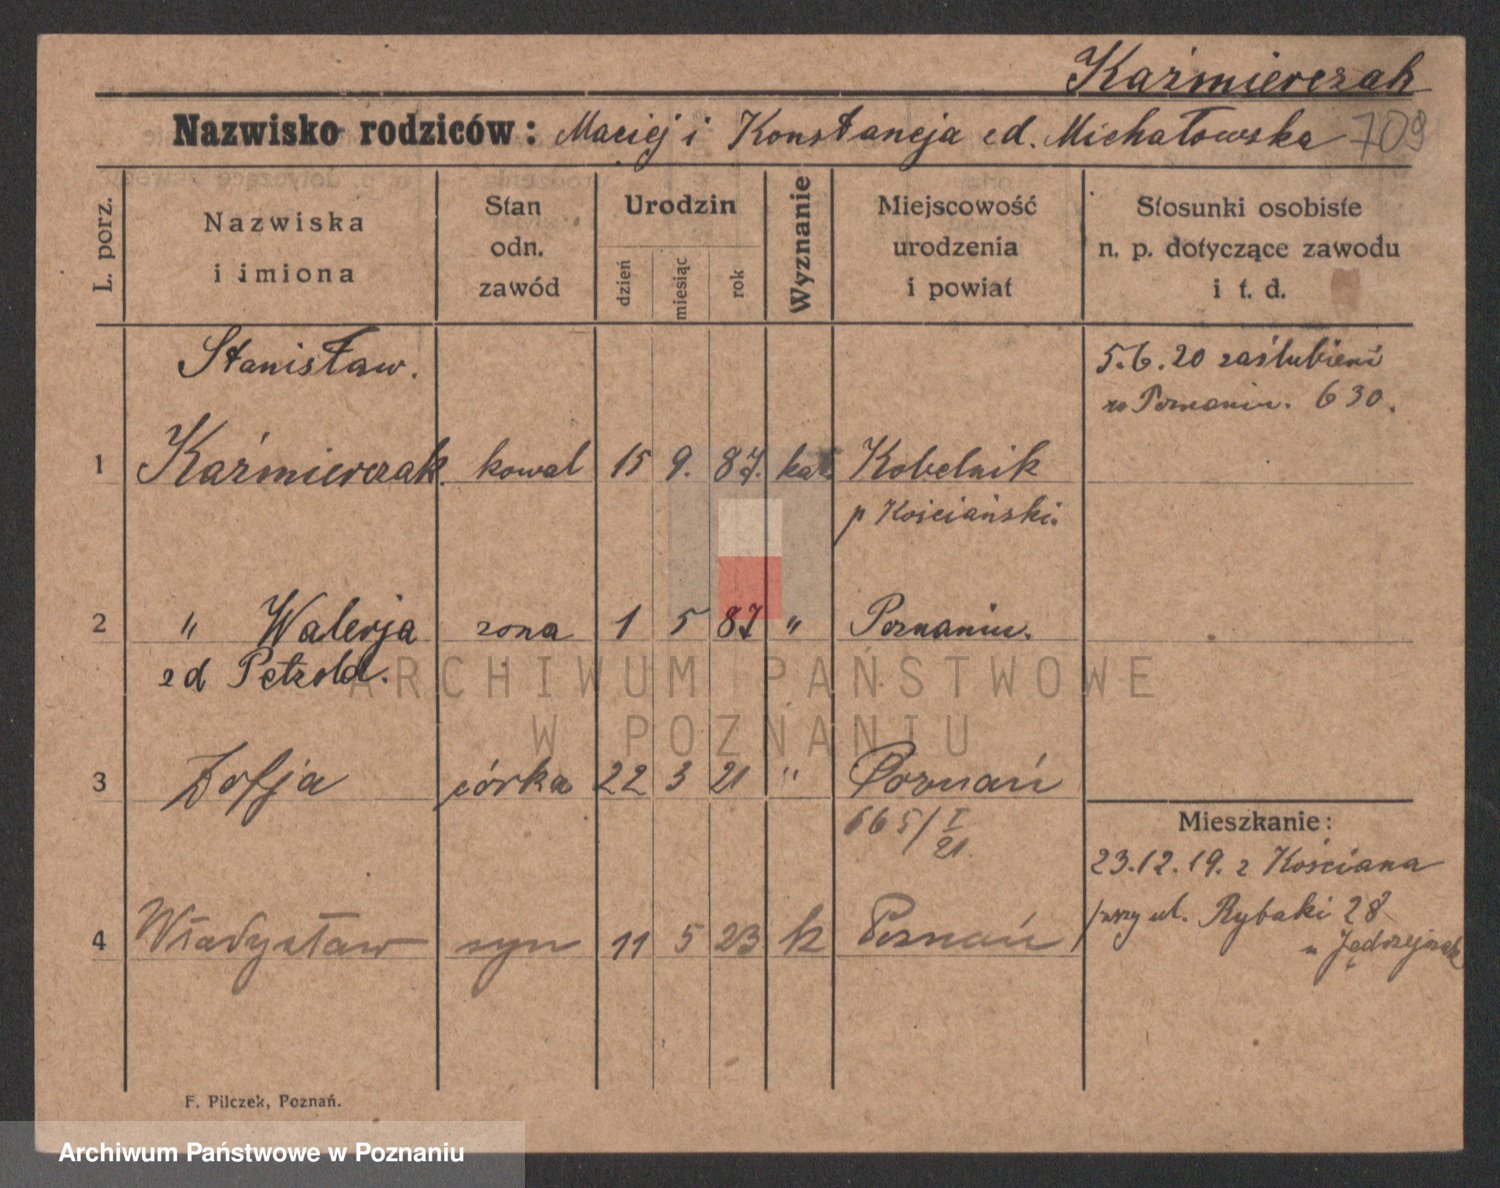 Kaźmierczak
Nazwisko rodziców: Maciej i Konstancja zd. Michałowska 709
L. porz.
Nazwiska
i imiona
Stan
odn.
zawód
Urodzin
dzień
miesiąc
rok
Wyznanie
Miejscowość
urodzenia
i powiat
Stosunki osobiste
n. p. dotyczące zawodu
i t. d.
Stanisław.
5.6.20 zaślubieni
w Poznaniu. 630.
1 Kaźmierczak. kowal 15 9. 87. kat. Kobelnik
p Kościański.
2 " Walerja zona 1 5 87 " Poznaniu.
zd Petzold.
ARCHIWUM PAŃSTWOWE
W POZNANIU
3 Zofja córka 22 3 21 " Poznań
665/I
21.
Mieszkanie:
23.12.19. z Kościana
przy ul. Rybaki 28
u Jędrzejczak
4 Władysław syn 11 5 23 k Poznań
F. Pilczek, Poznań.
Archiwum Państwowe w Poznaniu